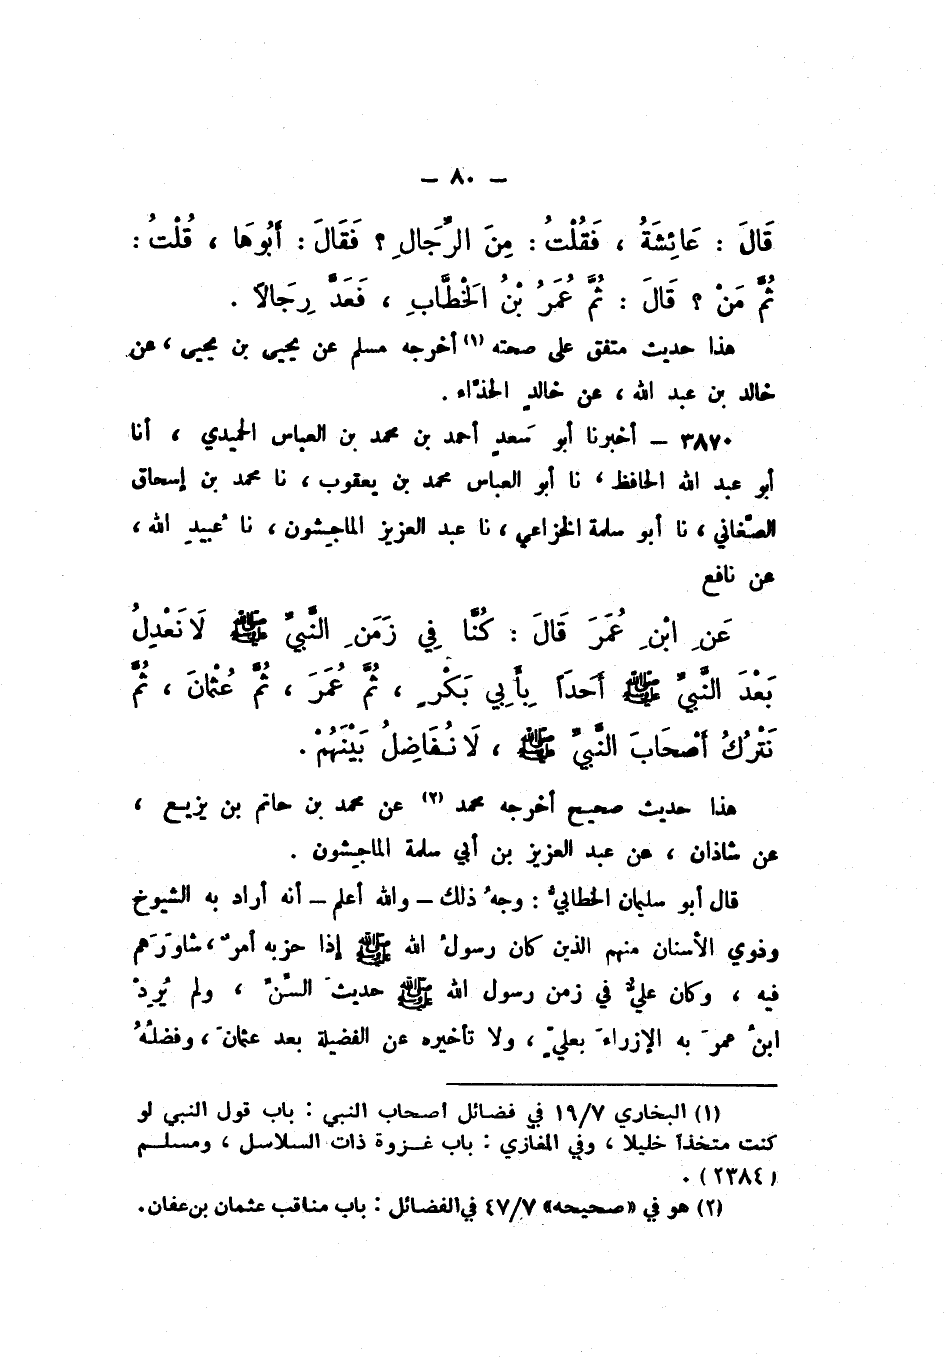 – ٨٠ –
قَالَ : عَائِشَةُ ، فَقُلْتُ : مِنَ الرِّجَالِ ؟ فَقَالَ : أَبُوهَا ، قُلْتُ :
ثُمَّ مَنْ ؟ قَالَ : ثُمَّ عُمَرُ بْنُ الْخَطَّابِ ، فَعَدَّ رِجَالاً .
هذا حديث متفق على صحته (١) أخرجه مسلم عن يحيى بن يحيى ، عن
خالد بن عبد الله ، عن خالدٍ الحذّاء .
٣٨٧٠ – أخبرنا أبو سَعدٍ أحمد بن محمد بن العباس الحميدي ، أنا
أبو عبد الله الحافظ ، نا أبو العباس محمد بن يعقوب ، نا محمد بن إسحاق
الصَّغاني ، نا أبو سلمة الخزاعي ، نا عبد العزيز الماجِشون ، نا عُبيدِ الله ،
عن نافع
عَنِ ابْنِ عُمَرَ قَالَ : كُنَّا فِي زَمَنِ النَّبِيِّ ﷺ لَا نَعْدِلُ
بَعْدَ النَّبِيِّ ﷺ أَحَداً بِأَبِي بَكْرٍ ، ثُمَّ عُمَرَ ، ثُمَّ عُثْمَانَ ، ثُمَّ
نَتْرُكُ أَصْحَابَ النَّبِيِّ ﷺ ، لَا نُفَاضِلُ بَيْنَهُمْ .
هذا حديث صحيح أخرجه محمد (٢) عن محمد بن حاتم بن بزيع ،
عن شاذان ، عن عبد العزيز بن أبي سلمة الماجِشون .
قال أبو سليمان الخطابيُّ : وجهُ ذلك – والله أعلم – أنه أراد به الشيوخ
وذوي الأسنان منهم الذين كان رسولُ الله ﷺ إذا حزبه أمرٌ ، شاوَرَهم
فيه ، وكان عليٌّ في زمن رسول الله ﷺ حديثَ السِّنِّ ، ولم يُرِدْ
ابنُ عمرَ به الإزراءَ بعليٍّ ، ولا تأخيره عن الفضيلة بعد عثمانَ ، وفضلُهُ
(١) البخاري ١٩/٧ في فضائل أصحاب النبي : باب قول النبي لو
كنت متخذاً خليلا ، وفي المغازي : باب غزوة ذات السلاسل ، ومسلم
(٢٣٨٤) .
(٢) هو في «صحيحه» ٤٧/٧ في الفضائل : باب مناقب عثمان بن عفان .